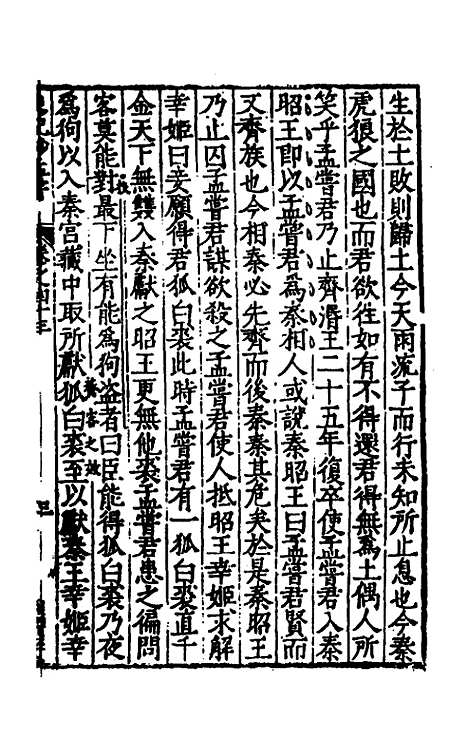 生於土敗則歸土今天雨流子而行未知所止息也今秦
虎狼之國也而君欲往如有不得還君得無為土偶人所
笑乎孟嘗君乃止齊湣王二十五年復卒使孟嘗君入秦
昭王即以孟嘗君為秦相人或說秦昭王曰孟嘗君賢而
又齊族也今相秦必先齊而後秦秦其危矣於是秦昭王
乃止囚孟嘗君謀欲殺之孟嘗君使人抵昭王幸姬求解
幸姬曰妾願得君狐白裘此時孟嘗君有一狐白裘直千
金天下無雙入秦獻之昭王更無他裘孟嘗君患之徧問
客莫能對最下坐有能為狗盜者曰臣能得狐白裘乃夜
養客之效
為狗以入秦宮臧中取所獻狐白裘至以獻秦王幸姬幸